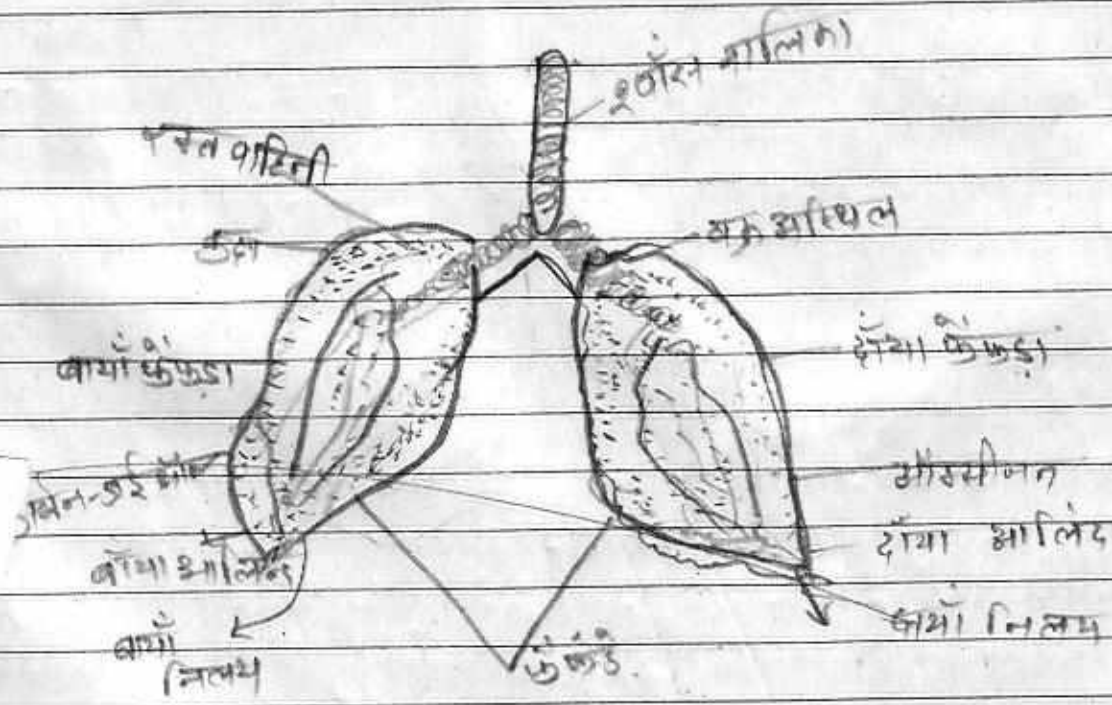 श्वाँस नालिका
रक्त वाहिनी
कुहा
चक्र अस्थिल
बायाँ फेंफड़ा
दाँया फेंफड़ा
ऑक्सीजन
बाँया आलिन्द
दाँया आलिंद
बायाँ
निलय
दायाँ निलय
फेंफड़े.